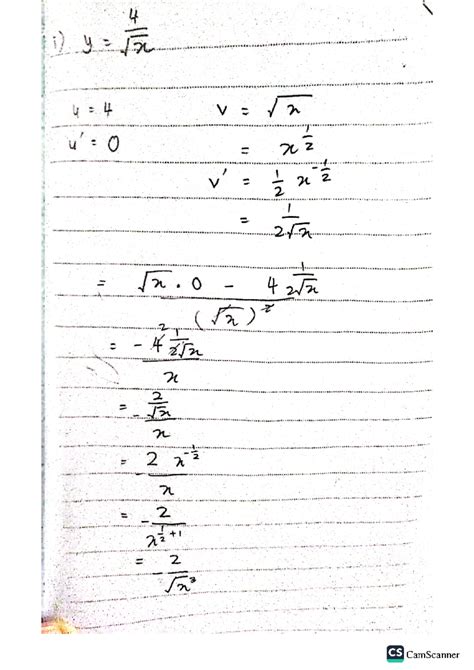 i) y = 4/√x
u = 4 v = √x
u' = 0 = x^(1/2)
v' = 1/2 x^(-1/2)
= 1/(2√x)
= (√x · 0 - 4 1/(2√x))/(√x)^2
= (-4 2 1/(2√x))/x
= -(2/√x)/x
= -(2 x^(-1/2))/x
= -2/x^(1/2+1)
= -2/√x^3
CS CamScanner